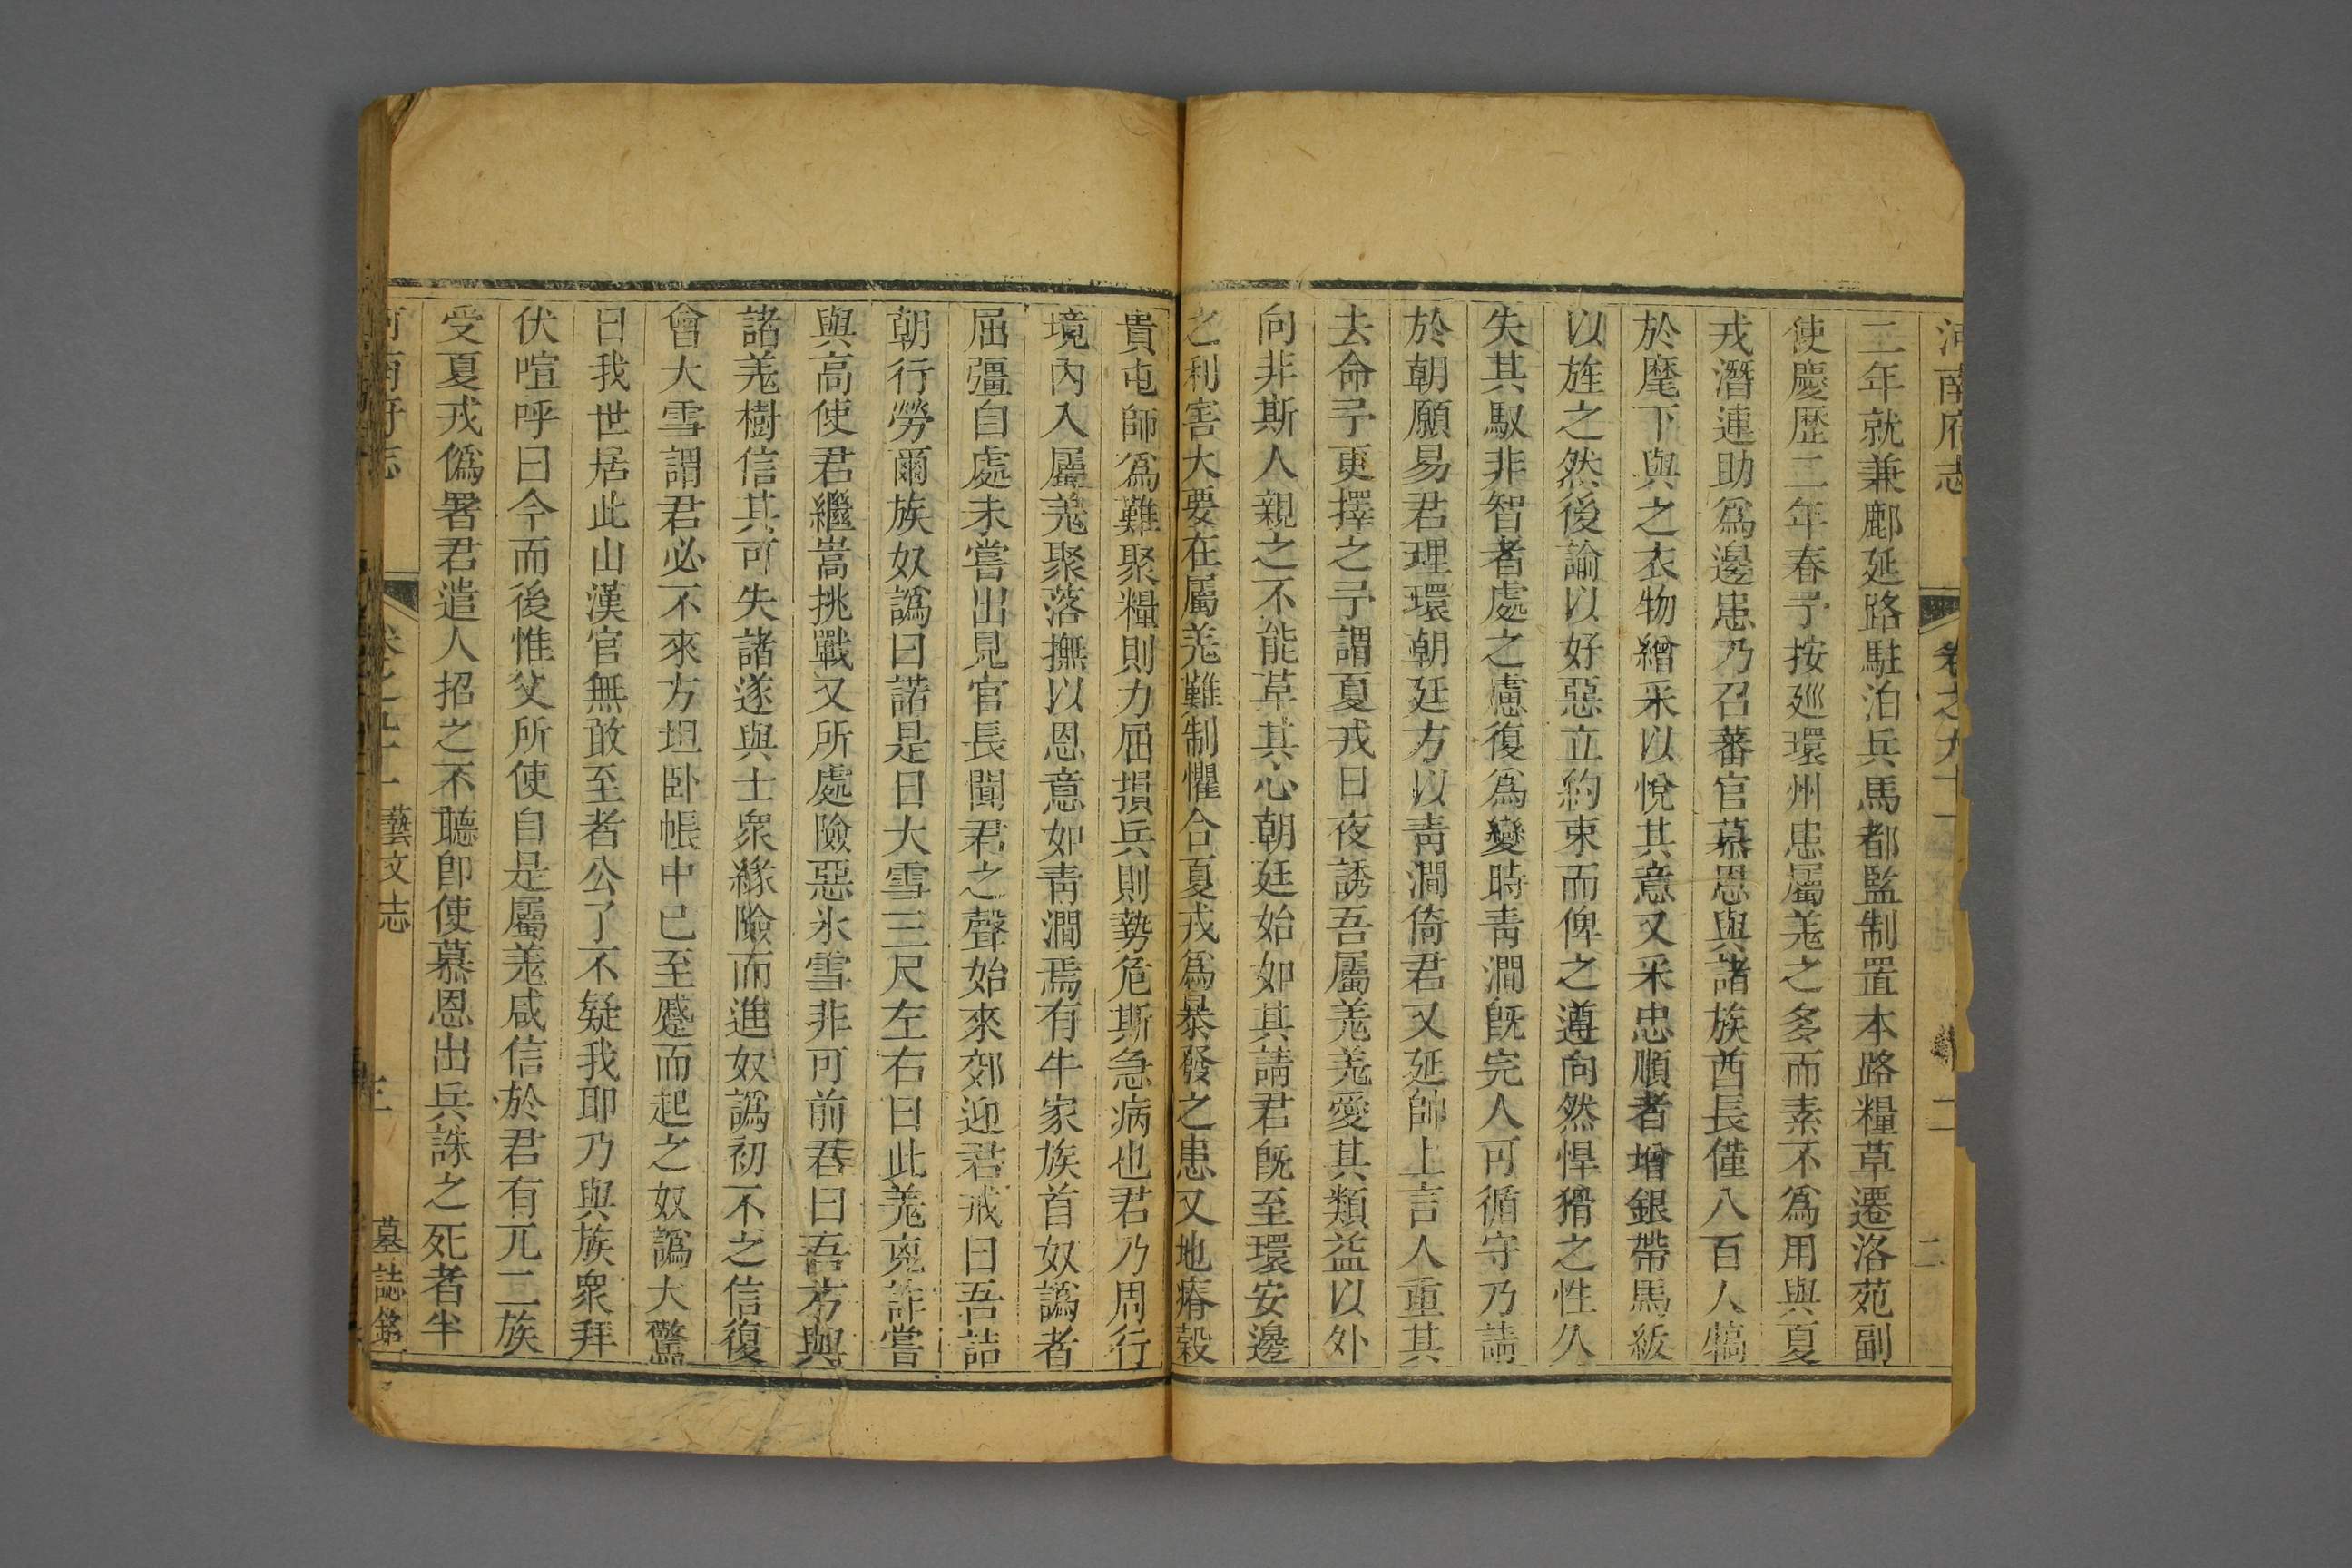 河南府志 卷之九十一 二
二年就兼鄜延路駐泊兵馬都監制置本路糧草遷洛苑副
使慶歷二年春予按廵環州患屬羗之多而素不爲用與夏
戎潛連助爲邊患乃召蕃官慕恩與諸族酋長僅八百人犒
於麾下與之衣物繒采以悅其意又采忠順者增銀帶馬紱
以旌之然後諭以好惡立約束而俾之遵向然悍猾之性久
失其馭非智者處之慮復爲變時青澗旣完人可循守乃請
於朝願易君理環朝廷方以青澗倚君又延帥上言人重其
去命予更擇之予謂夏戎日夜誘吾屬羗羗愛其類益以外
向非斯人親之不能革其心朝廷始如其請君旣至環安邊
之利害大要在屬羗難制懼合夏戎爲暴發之患又地瘠穀
貴屯師爲難聚糧則力屈損兵則勢危斯急病也君乃周行
境內入屬羗聚落撫以恩意如青澗焉有牛家族首奴譌者
屈彊自處未嘗出見官長聞君之聲始來郊迎君戒曰吾詰
朝行勞爾族奴譌曰諾是日大雪三尺左右曰此羗兇詐嘗
與高使君繼嵩挑戰又所處險惡氷雪非可前君曰吾方與
諸羗樹信其可失諸遂與士衆緣險而進奴譌初不之信復
會大雪謂君必不來方坦卧帳中已至蹙而起之奴譌大驚
曰我世居此山漢官無敢至者公了不疑我耶乃與族衆拜
伏喧呼曰今而後惟父所使自是屬羗咸信於君有兀二族
受夏戎僞署君遣人招之不聽卽使慕恩出兵誅之死者半
河南府志 卷之九十一 藝文志 三 墓誌銘